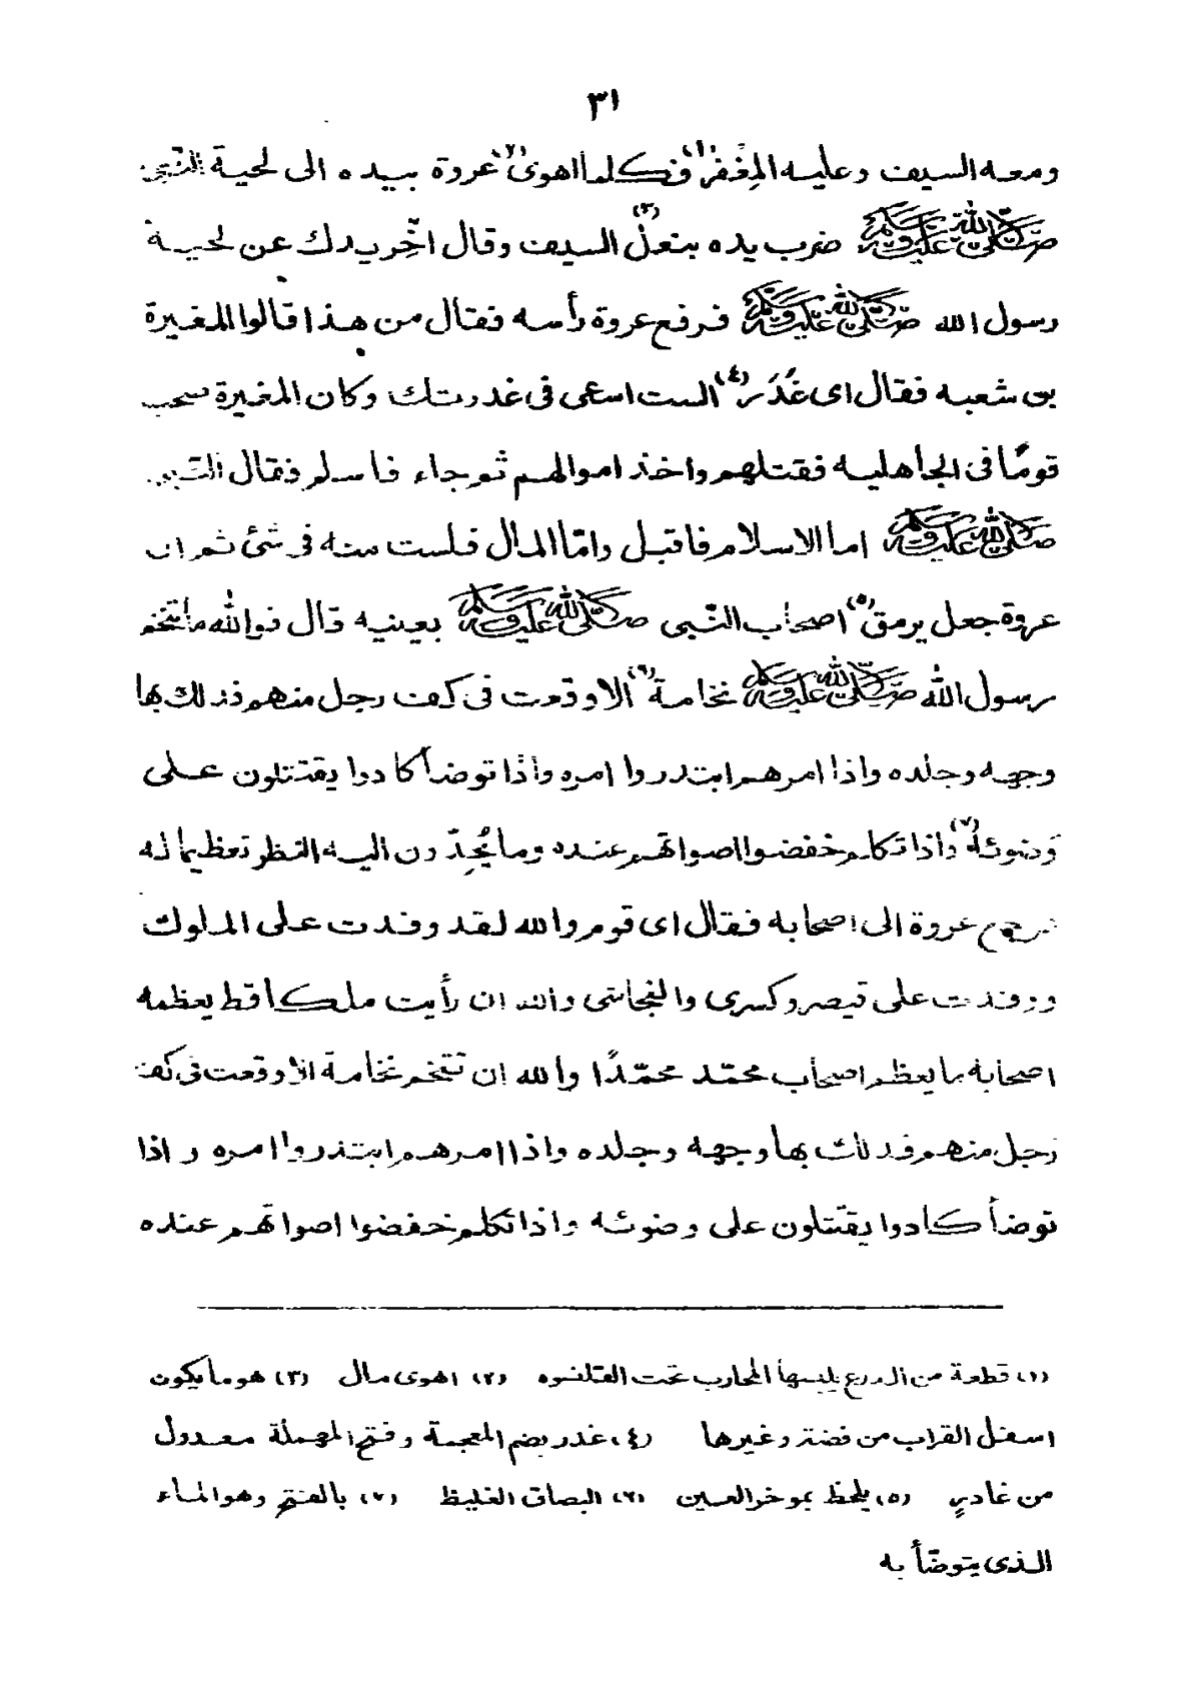 ٣١
ومعه السيف وعليه المِغْفر(١) فكلما اهوى(٢) عروة بيده الى لحية النّبى
صَلَّى اللهُ عَلَيْهِ وَسَلَّمَ ضرب يده بنعل(٣) السيف وقال اخِّر يدك عن لحية
رسول الله صَلَّى اللهُ عَلَيْهِ وَسَلَّمَ فرفع عروة رأسه فقال من هذا قالوا المغيرة
بن شعبه فقال اى غُدَر(٤) الست اسعى فى غدرتك وكان المغيرة صحب
قومًا فى الجاهليه فقتلهم واخذ اموالهم ثم جاء فاسلم فقال النّبى
صَلَّى اللهُ عَلَيْهِ وَسَلَّمَ اما الاسلام فاقبل وامّا المال فلست منه فى شئ ثم ان
عروة جعل يرمق(٥) اصحاب النّبى صَلَّى اللهُ عَلَيْهِ وَسَلَّمَ بعينيه قال فوالله ما تنخم
رسول الله صَلَّى اللهُ عَلَيْهِ وَسَلَّمَ نخامة(٦) الا وقعت فى كف رجل منهم فدلك بها
وجهه وجلده واذا امرهم ابتدروا امره واذا توضأ كادوا يقتتلون على
وضوئه(٧) واذا تكلم خفضوا اصواتهم عنده وما يُحِدّون اليه النظر تعظيما له
فرجع عروة الى اصحابه فقال اى قوم والله لقد وفدت على الملوك
ووفدت على قيصر وكسرى والنجاشى والله ان رأيت ملكا قط يعظمه
اصحابه ما يعظم اصحاب محمّد محمّدًا والله ان تنخم نخامة الا وقعت فى كف
رجل منهم فدلك بها وجهه وجلده واذا امرهم ابتدروا امره واذا
توضأ كادوا يقتتلون على وضوئه واذا تكلم خفضوا اصواتهم عنده
(١) قطعة من الدرع يلبسها المحارب تحت القلنسوه (٢) اهوى مال (٣) هو ما يكون
اسفل القراب من فضة وغيرها (٤) غدر بضم المعجمة وفتح المهملة معدول
من غادرٍ (٥) يلحظ بموخر العين (٦) البصاق الغليظ (٧) بالفتح وهو الماء
الذى يتوضّأ به